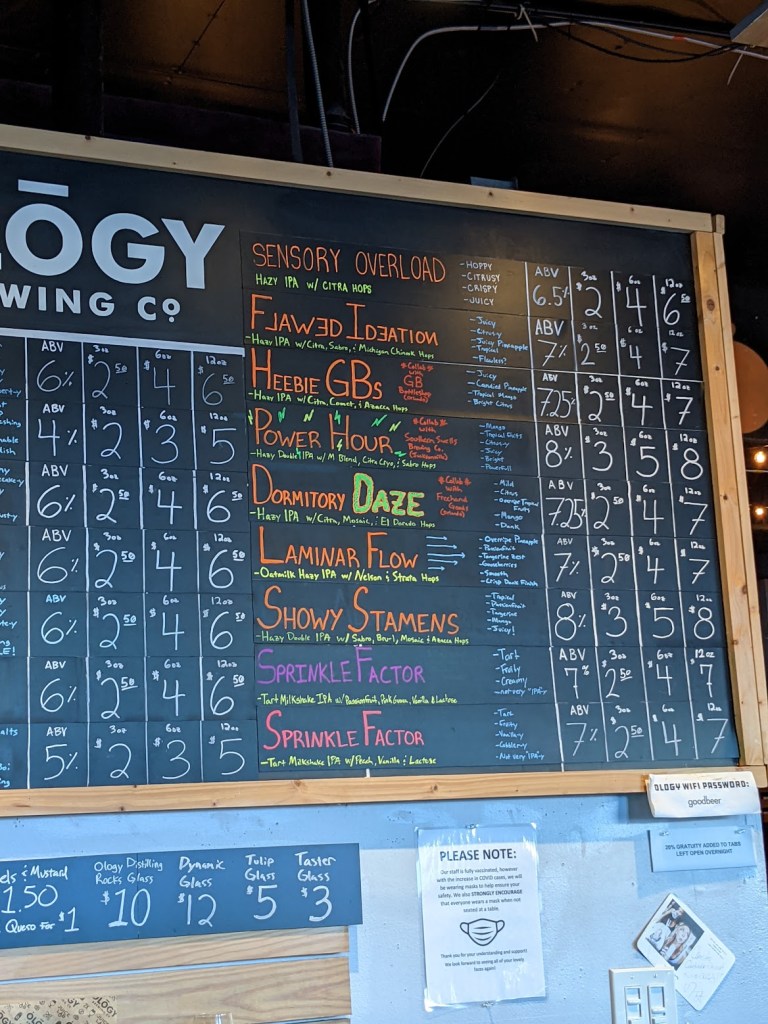 OLOGY
WING Co
ABV 6% 3oz $2.50 6oz $4 12oz $6.50
ABV 4% 3oz $2 6oz $3 12oz $5
ABV 6% 3oz $2.50 6oz $4 12oz $6.50
ABV 6% 3oz $2.50 6oz $4 12oz $6.50
ABV 6% 3oz $2.50 6oz $4 12oz $6.50
ABV 6% 3oz $2.50 6oz $4 12oz $6.50
ABV 5% 3oz $2 6oz $3 12oz $5
SENSORY OVERLOAD
HAZY IPA w/ CITRA HOPS
- HOPPY
- CITRUSY
- CRISPY
- JUICY
ABV 6.5% 3oz $2 6oz $4 12oz $6.50
FLAWED IDEATION
- Hazy IPA w/ Citra, Sabro, & Michigan Chinook Hops
- Juicy
- Citrusy
- Juicy Pineapple
- Tropical
- Flawless?
ABV 7% 3oz $2.50 6oz $4 12oz $7
HEEBIE GBs
- Hazy IPA w/ Citra, Comet, & Azacca Hops
*Collab*
with
GB
Bottleshop
(Orlando)
- Juicy
- Candied Pineapple
- Tropical Mango
- Bright Citrus
ABV 7.25% 3oz $2.50 6oz $4 12oz $7
POWER HOUR
- Hazy Double IPA w/ M Blend, Citra Cryo, & Sabro Hops
*Collab*
with
Southern Swells
Brewing Co.
(Jacksonville)
- Mango
- Tropical Fruits
- Citrus-y
- Juicy
- Bright
- Powerful!
ABV 8% 3oz $3 6oz $5 12oz $8
DORMITORY DAZE
- Hazy IPA w/ Citra, Mosaic, & El Dorado Hops
*Collab*
with
Freehand
Goods
(Orlando)
- Mild
- Citrus
- Overripe Tropical
Fruits
- Mango
- Dank
ABV 7.25% 3oz $2.50 6oz $4 12oz $7
LAMINAR FLOW
- Oatmilk Hazy IPA w/ Nelson & Strata Hops
- Overripe Pineapple
- Passionfruit
- Tangerine Zest
- Gooseberries
- Smooth
- Crisp Dank Finish
ABV 7% 3oz $2.50 6oz $4 12oz $7
SHOWY STAMENS
- Hazy Double IPA w/ Sabro, Bru-1, Mosaic & Azacca Hops
- Tropical
- Passionfruit
- Tangerine
- Mango
- Juicy!
ABV 8% 3oz $3 6oz $5 12oz $8
SPRINKLE FACTOR
- Tart Milkshake IPA w/ Passionfruit, Pink Guava, Vanilla & Lactose
- Tart
- Fruity
- Creamy
- not very "IPA"y
ABV 7% 3oz $2.50 6oz $4 12oz $7
SPRINKLE FACTOR
- Tart Milkshake IPA w/ Peach, Vanilla & Lactose
- Tart
- Fruity
- Vanillary
- Cobblerry
- Not very IPA-y
ABV 7% 3oz $2.50 6oz $4 12oz $7
els & Mustard
1.50
Queso For $1
Ology Distilling
Rocks Glass
$10
Dynamic
Glass
$12
Tulip
Glass
$5
Taster
Glass
$3
OLOGY WIFI PASSWORD:
goodbeer
20% GRATUITY ADDED TO TABS
LEFT OPEN OVERNIGHT
PLEASE NOTE:
Our staff is fully vaccinated, however
with the increase in COVID cases, we will
be wearing masks to help ensure your
safety. We also STRONGLY ENCOURAGE
that everyone wears a mask when not
seated at a table.
Thank you for your understanding and support!
We look forward to seeing all of your lovely
faces again!
OLOGY